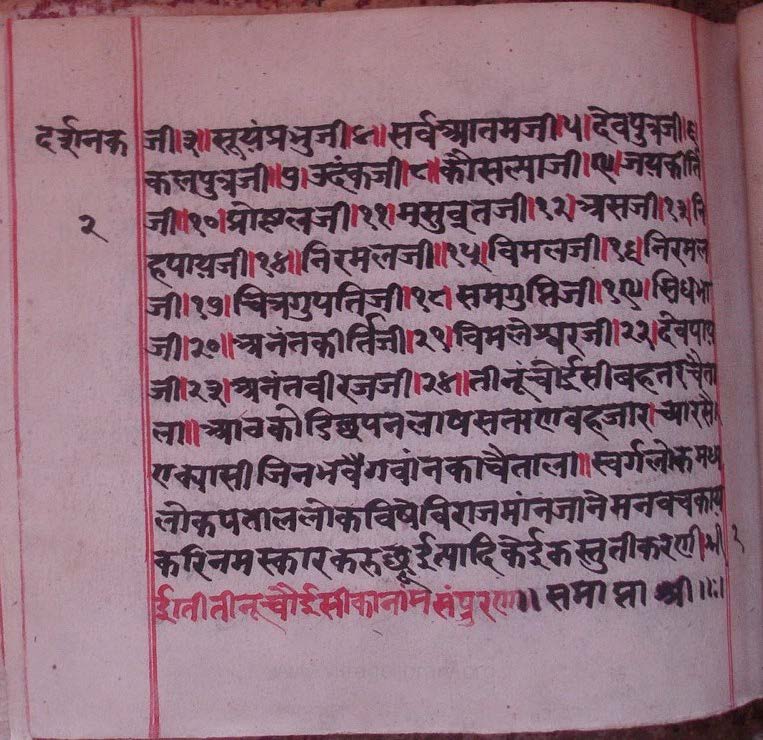 दर्शनक
२
जी।३॥सूयंप्रभुजी।४॥सर्वग्यानमजी।५।देवपुत्रजी।६
कलपुत्रजी॥७।उदंकजी।८।कौसल्याजी।९।जयकीर्ति
जी॥१०।प्रोष्टलजी।११।मसुवृतजी।१२।असजी।१३।नि
हपायजी।१४॥निरमलजी॥१५।विमलजी।१६।निरमल
जी।१७।चित्रगुपतिजी।१८।समगुप्तिजी।१९।
जी।२०॥अनंतकीर्तिजी।२१।विमलेश्वरजी।२२।देवपाय
जी।२३।अनंतवीरजजी।२४॥तीनूंचौईसीबहतरचैता
ला॥आठकोडिछपनलाषसतारणवहजार।च्यारसै।
एक्यासीजिनभवैगवांनकाचैताला॥स्वर्गलोकमध्य
लोकपताललोकविषेविराजमांनजांनैमनवचकाय
करिनमस्कारकरुछूईत्यादिकेईकस्तुतीकरणी।श्री २
ईतीतीनूचौईसीकानांमसंपुरण॥समाप्ताश्री॥